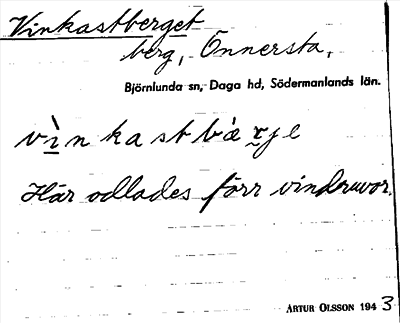 Vinkastberget
berg, Önnersta,
Björnlunda sn, Daga hd, Södermanlands län.
vìnkastbàrje
Här odlades förr vindruvor.
Artur Olsson 1943